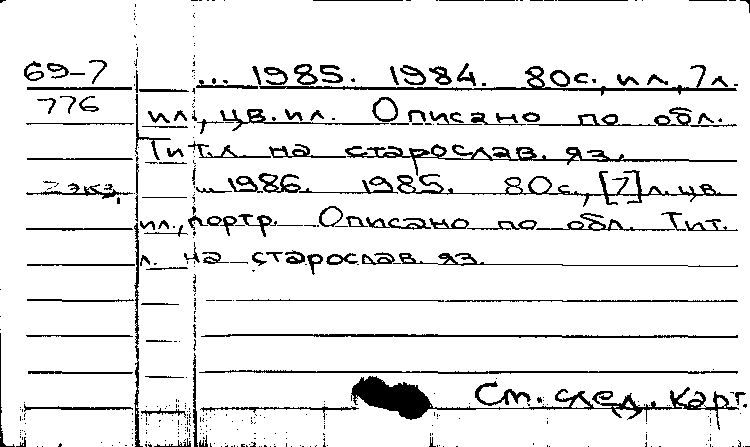 69-7 ... 1985. 1984. 80с., ил., 7л.
776 ил., цв. ил. Описано по обл.
Тит.л. на старослав. яз.
2 экз. ... 1986. 1985. 80с., [7] л. цв.
ил., портр. Описано по обл. Тит.
л. на старослав. яз.
См. след. карт.